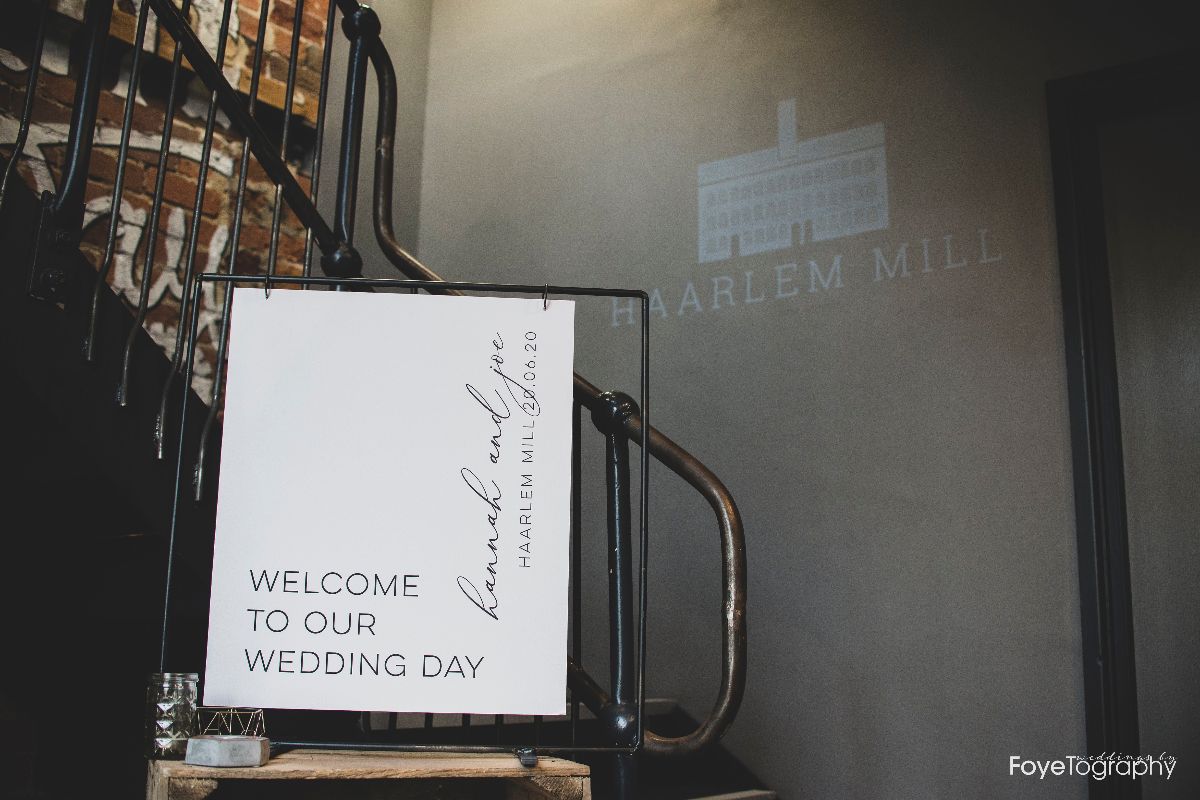 HAARLEM MILL
hannah and joe
HAARLEM MILL 20.06.20
WELCOME
TO OUR
WEDDING DAY
weddings by
FoyeTography